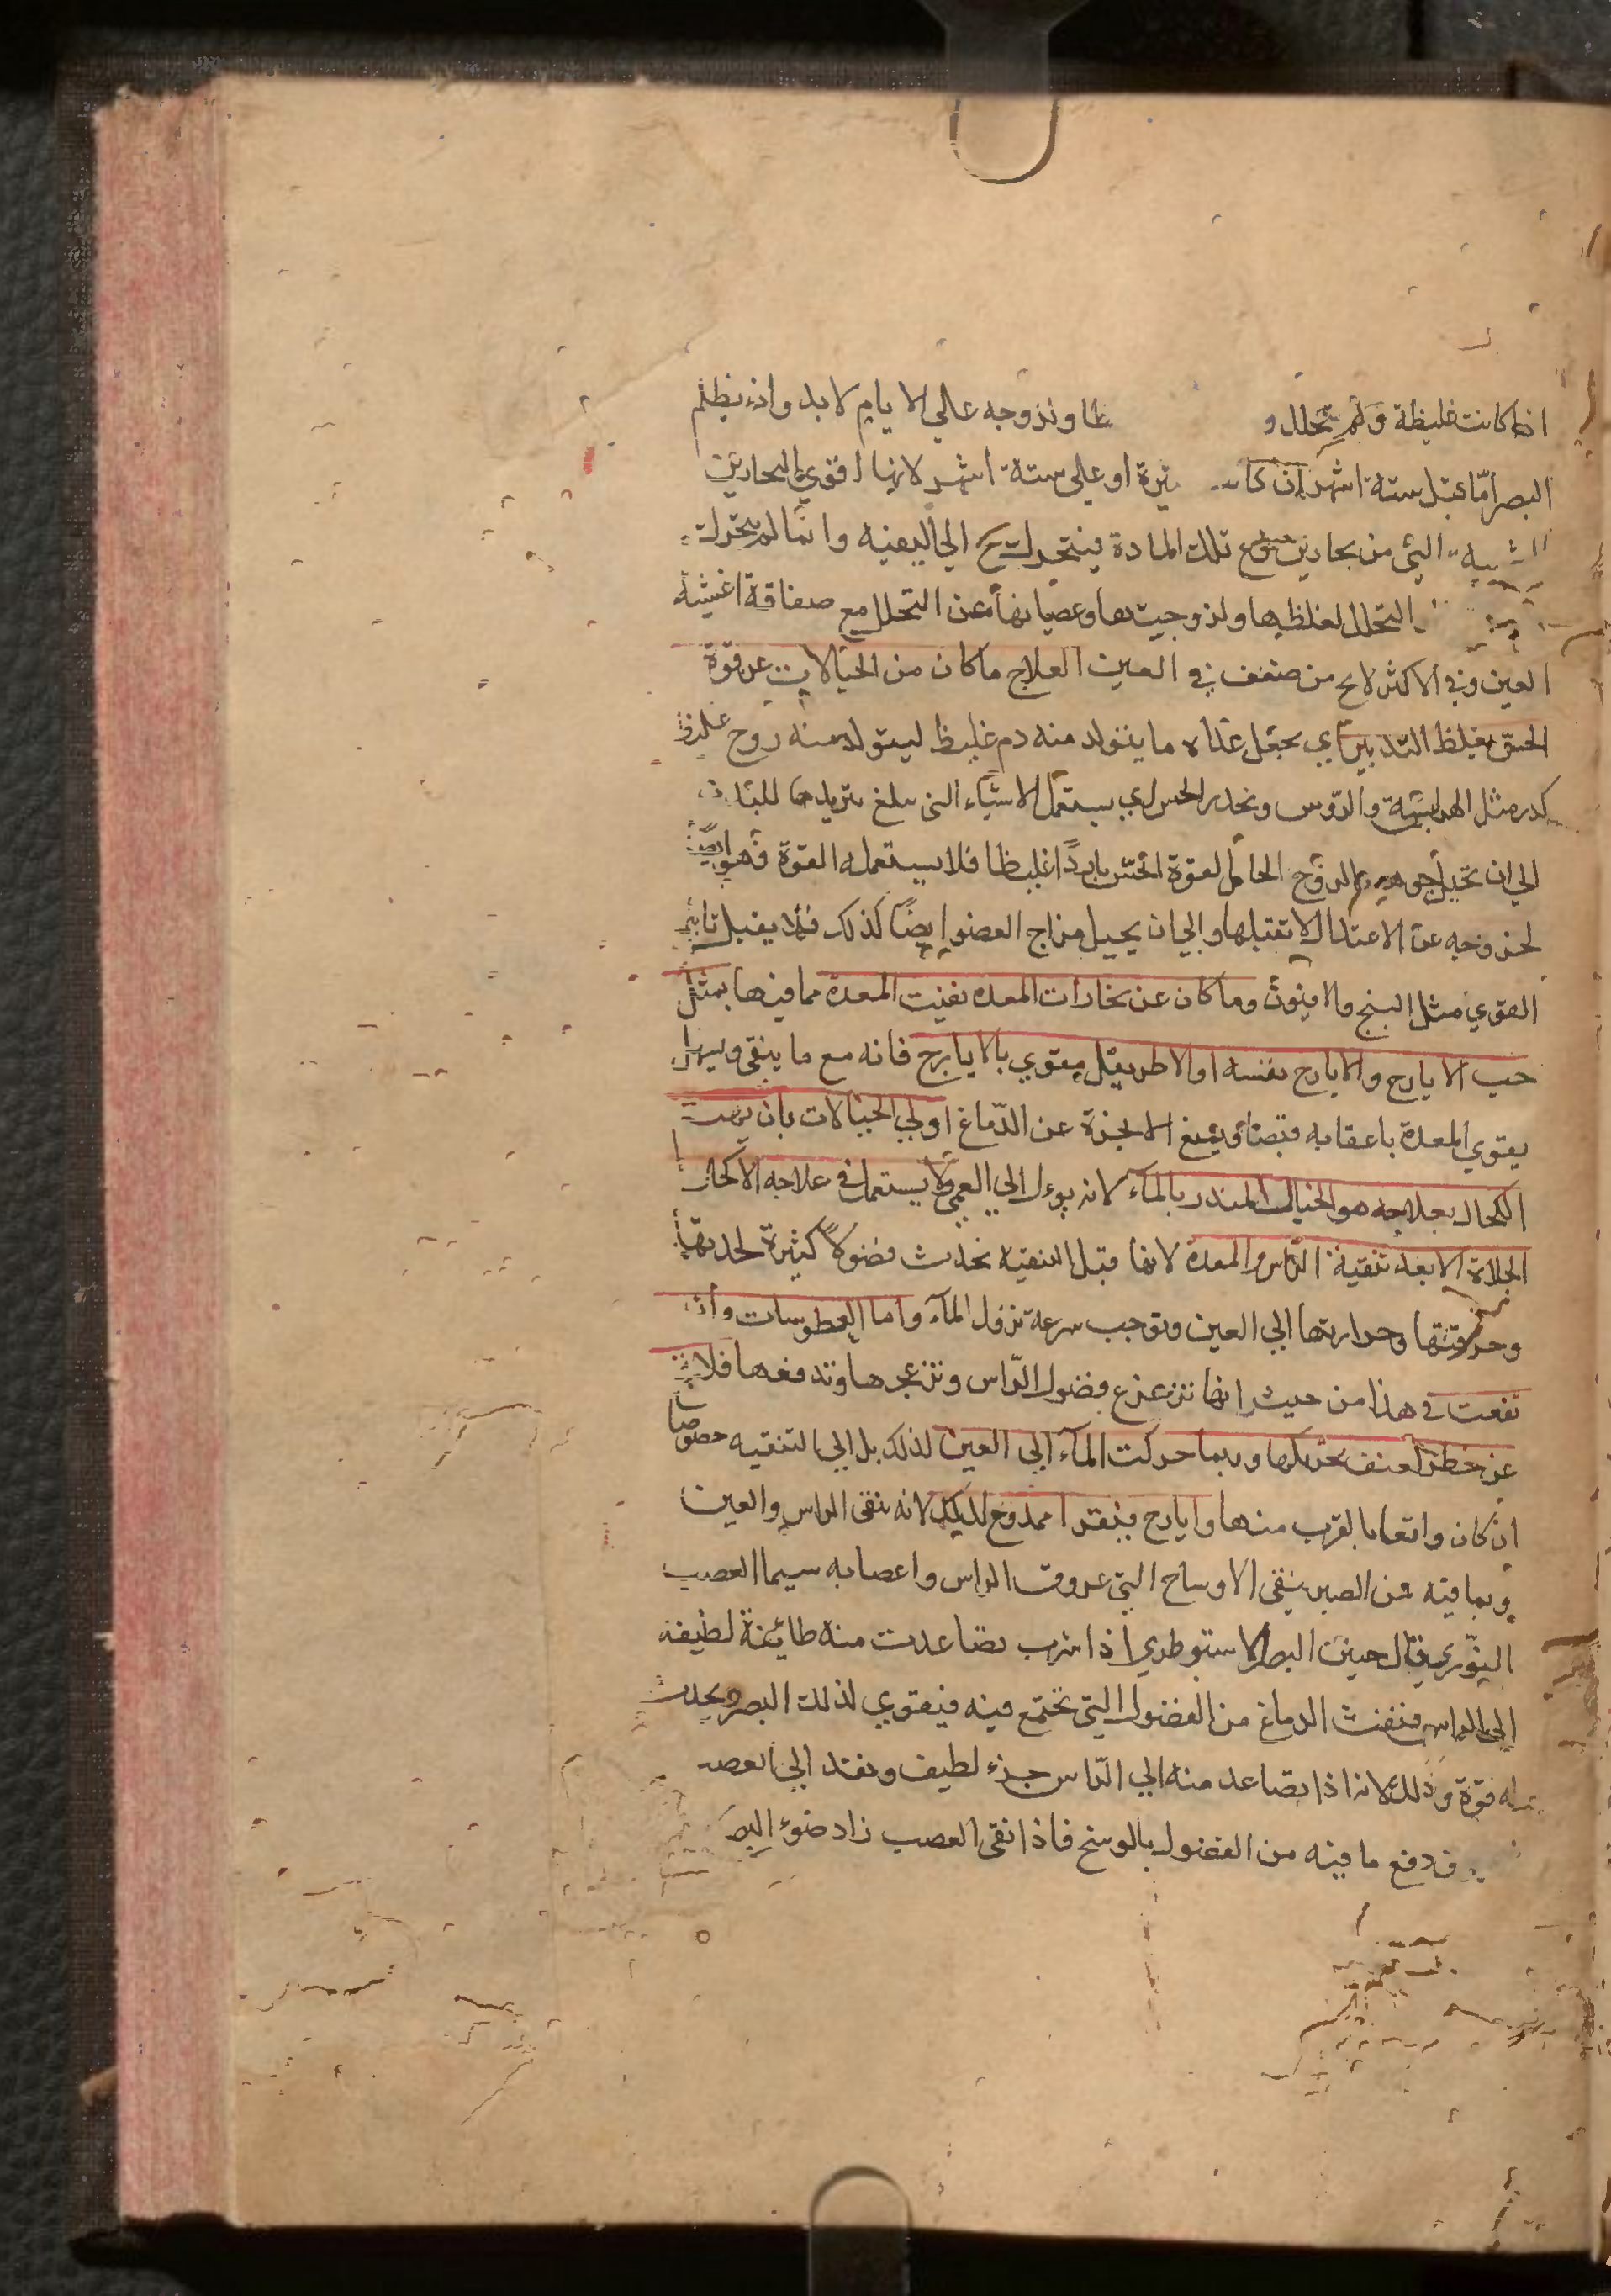 اذا كانت غليظة ولم تحلل و طا ونزوجه علي الايام لابد وانه يظلم
البصر امّا قبل ستة اشهر ان كانت او علي ستة اشهر لانها اقوي البحارين
التي من بحارين تلك المادة فيتحرك الي العينيه وانما لم يتحرك
التحلل لغلظها ولزوجيتها وعصيانها عن التحلل مع صفاقة اغشية
العين وفي الاكثر لا يخ من ضعف في العين العلاج ما كان من الخيالات عن قوة
الحسّ يغلظ التدبير اي يجعل غذاه ما يتولد منه دم غليظ ليتولد منه روح غليظ
كدر مثل الهرايسة والروس ويخدر الحس اي يستعمل الاشياء التي يبلغ بتريدها للبدن
الي ان تحيل جوهر الروح الحامل لقوة الحسّ باردًا غليظا فلا يستعمله القوة فهو ايضًا
لخروجه عن الاعتدال لا تقبلها والي ان يحيل مزاج العضو ايضًا كذلك فلا يقبل تاثير
القوي مثل البنج والافيون وما كان عن بخارات المعده نقيت المعدة مما فيها بمثل
حب الايارج والايارج نفسه او الاطريفل مقوي بالايارج فانه مع ما ينقي ويسهل
يقوي المعدة باعقابه قبضا ويمنع الابخرة عن الدّماغ اولي الخيالات بان
الكحال بعلاجه هو الخيال المنذر بالمآء لانه يوءل الي العمي ولا يستعمل في علاجه الاكحال
الجلاة الا بعد تنقية الرّاس والمعدة لانها قبل التنقيه تحدث فضولاً كثيرة لحدتها
وحرافتها وحرارتها الي العين وتوجب سرعة نزول المآء واما العطوسات وان
نفعت في هذا من حيث انها تزعزع فضول الرّاس وتزعجها وتدفعها فلا
عن خطر لعنف تحريكها وربما حركت المآء الي العين لذلك بل الي التنقيه خصوصا
ان كان واقعا بالقرب منها وايارج فيقرا ممدوح لذلك لانه ينقي الراس والعين
وبما فيه من الصبر ينقي الاوساخ التي عروق الراس واعصابه سيما العصب
النوّري قال حنين البصر الاسقوطري اذا شرب تصاعدت منه طائفة لطيفة
الي الراس فنقت الدماغ من الفضول التي تجتمع فيه فيقوي لذلك البصر ويحدث
له قوة وذلك لانه اذا تصاعد منه الي الرّاس جزء لطيف ونفذ الي العصب
فدفع ما فيه من الفضول بالوسخ فاذا نقي العصب زاد ضوء البصر